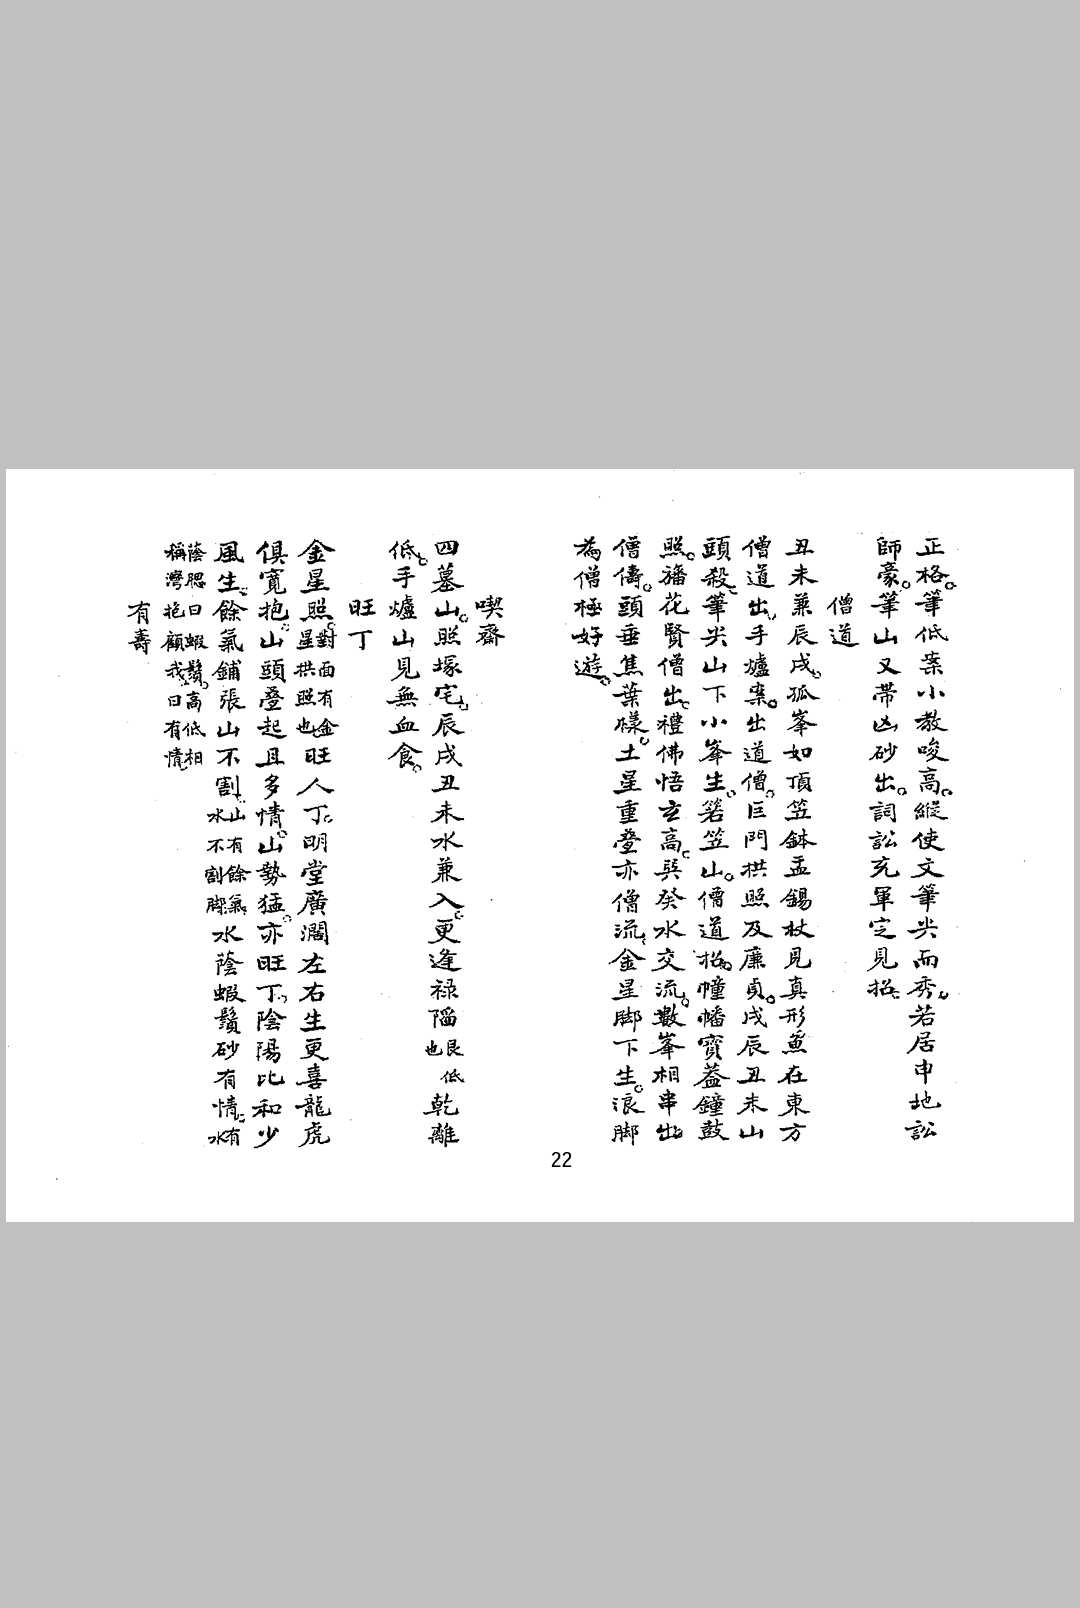 正格。筆低案小教唆高。縱使文筆尖而秀。若居申地訟
師豪。筆山又帶凶砂出。詞訟充軍定見招。
僧道
丑未兼辰戌。孤峯如頂笠鉢盂錫杖見真形魚在東方
僧道出。手爐案。出道僧。巨門拱照及廉貞。戌辰丑未山
頭殺。筆尖山下小峯生。箬笠山。僧道招。幢幡寶蓋鐘鼓
照。旛花賢僧出。禮佛悟玄高。巽癸水交流。數峯相串出。
僧儔。頭垂焦葉樣。土星重疊亦僧流。金星脚下生。浪脚
為僧極好遊。
喫齋
四墓山。照塚宅。辰戌丑未水兼入。更逢祿
艮低
也
乾離
低。手爐山見無血食。
旺丁
金星照。
對面有金
星拱照也
旺人丁。明堂廣濶左右生更喜龍虎
俱寬抱。山頭疊起且多情。山勢猛。亦旺丁。陰陽比和少
風生。餘氣鋪張山不割。
山有餘氣
水不割脚
水蔭蝦鬚砂有情。
有
水
蔭腮曰蝦鬚。高低相
稱灣抱顧我曰有情。
有壽
22